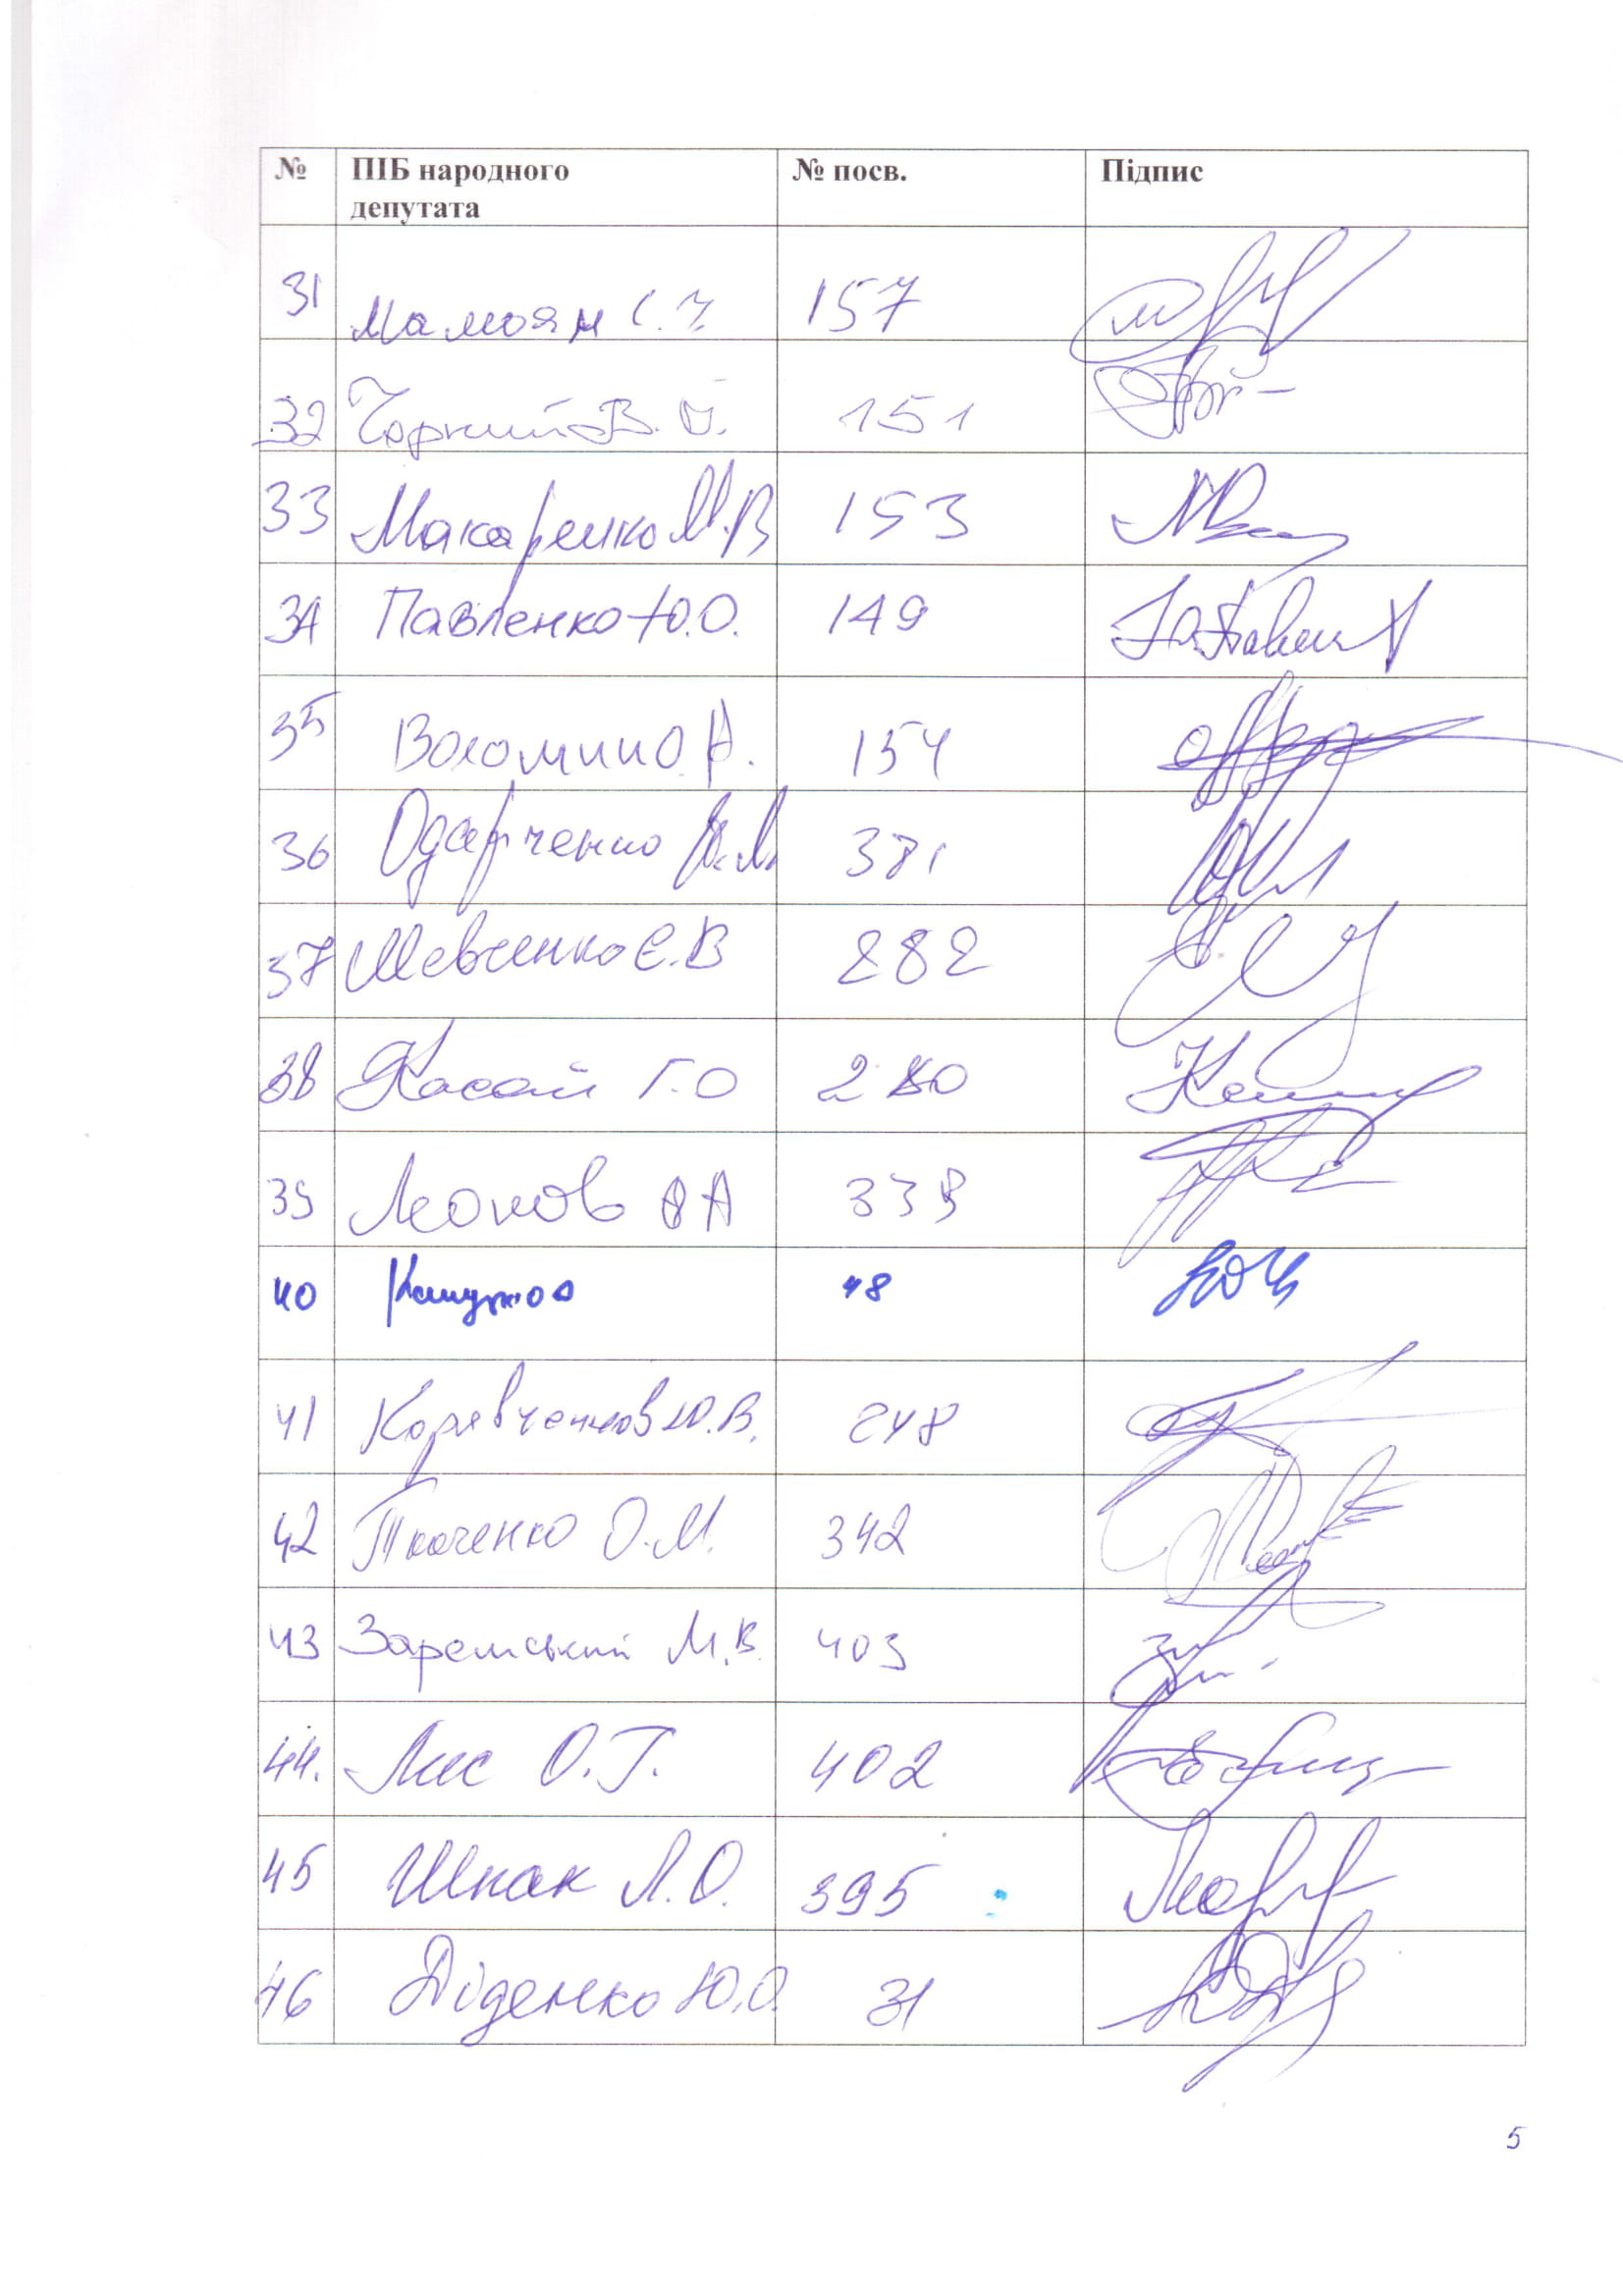 № ПІБ народного депутата № посв. Підпис
31 Мамоян С.Ч 157
32 Чорний В.І. 151
33 Макаренко М.В 153
34 Павленко Ю.О. 149
35 154
36 Одарченко Ю.М. 381
37 Шевченко Є.В 282
38 Касай Г.О 280
39 Леонов О А 339
40 48
41 Корявченков Ю.В. 248
42 Ткаченко О.М. 342
43 Заремський М.В. 403
44. Лис О.Г. 402
45 Шпак Л.О. 395
46 Діденко Ю.О. 31
5